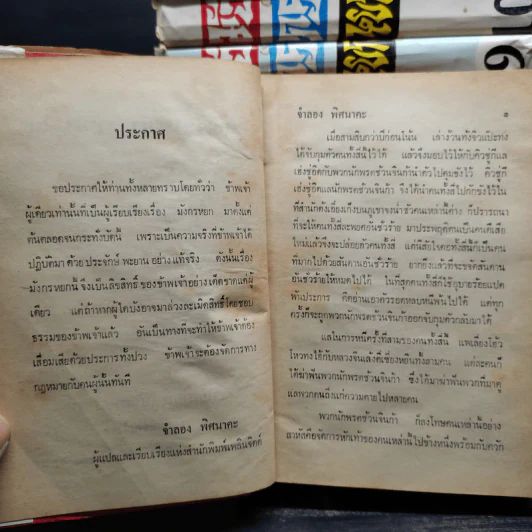 ประกาศ
ขอประกาศให้ท่านทั้งหลายทราบโดยทั่วว่า ข้าพเจ้า
ผู้เดียวเท่านั้นที่เป็นผู้เรียบเรียงเรื่อง มังกรหยก มาตั้งแต่
ต้นตลอดจนกระทั่งบัดนี้ เพราะเป็นความจริงที่ข้าพเจ้าได้
ปฏิบัติมา ด้วย ประจักษ์ พะยาน อย่าง แท้จริง ดังนั้นเรื่อง
มังกรหยกนี้ จึงเป็นลิขสิทธิ์ ของข้าพเจ้าอย่างเด็ดขาดแต่ผู้
เดียว แต่ถ้าหากผู้ใดบังอาจมาล่วงละเมิดสิทธิ์โดยชอบ
ธรรมของข้าพเจ้าแล้ว อันเป็นทางที่จะทำให้ข้าพเจ้าต้อง
เสื่อมเสียด้วยประการทั้งปวง ข้าพเจ้าจะต้องจัดการทาง
กฎหมายกับคนผู้นั้นทันที
จำลอง พิศนาคะ
ผู้แปลและเรียบเรียงแห่งสำนักพิมพ์เพลินจิตต์
จำลอง พิศนาคะ ๑
เมื่อสามสิบกว่าปีก่อนโน้น เล่าง้วนทั้งชิวแปะทง
ได้จับกุมตัวคนทั้งสี่ไว้ได้ แล้วจึงมอบไว้ให้กับคิวชู่กีแล
เฮ่งชู่อิดกับพวกนักพรตช้วนจินก้านำตัวไปคุมขังไว้ คิวชู่กี
เฮ่งชู่อิดแลนักพรตช้วนจินก้า จึงได้นำคนทั้งสี่ไปกักขังไว้ใน
ที่สำนักเต๋งเอี้ยงเก็งบนภูเขาจงน่ำซัวคนเหล่านี้ต่าง ก็ปรารถนา
ที่จะให้คนทั้งสี่ละพยศอันชั่วร้าย มาประพฤติตนเป็นคนดีเสีย
ใหม่แล้วจึงจะปล่อยตัวคนทั้งสี่ แต่นิสัยใจคอทั้งสี่มาเป็นคน
ที่มากไปด้วยสันดานอันชั่วร้าย ยากยิ่งแล้วที่จะขจัดสันดาน
อันชั่วร้ายให้หมดไปได้ ในที่สุดคนทั้งสี่ก็ใช้อุบายร้อยแปด
พันประการ คิดอ่านเอาตัวรอดหลบหนีพ้นไปได้ แต่ทุก
ครั้งก็จะถูกพวกนักพรตช้วนจินก้าออกจับกุมตัวกลับมาได้
แลในการหนีครั้งที่สามของคนทั้งสี่นี้ แพเลี่ยงโฮ้ว
โหวทงไฮ้กับหลวงจีนเล้งตี่เซี่ยงหยินทั้งสามคน แต่ละคนก็
ได้ฆ่าฟันพวกนักพรตช้วนจินก้า ซึ่งได้มาฆ่าฟันพวกที่มาดู
แลพวกตนถึงแก่ความตายไปหลายคน
พวกนักพรตช้วนจินก้า ก็ลงโทษคนเหล่านี้อย่าง
สาหัสคือจัดการหักเท้าของคนเหล่านี้ไปข้างหนึ่งพร้อมกับควัก
๑๐